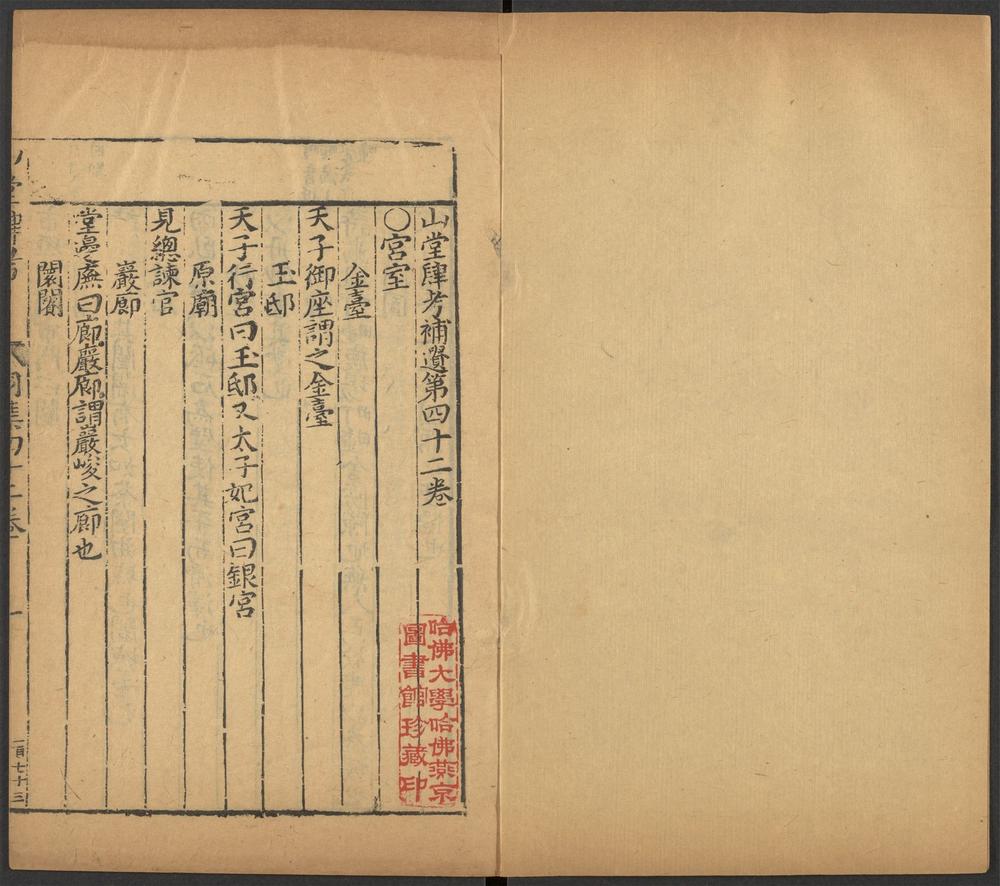 山堂肆考補遺第四十二卷
○宮室
金臺
天子御座謂之金臺
玉邸
天子行宮曰玉邸又太子妃宮曰銀宮
原廟
見總諫官
巖廊
堂邊廡曰廊巖廊謂巖峻之廊也
闤闠
一百七十三
哈佛大學哈佛燕京
圖書館珍藏印